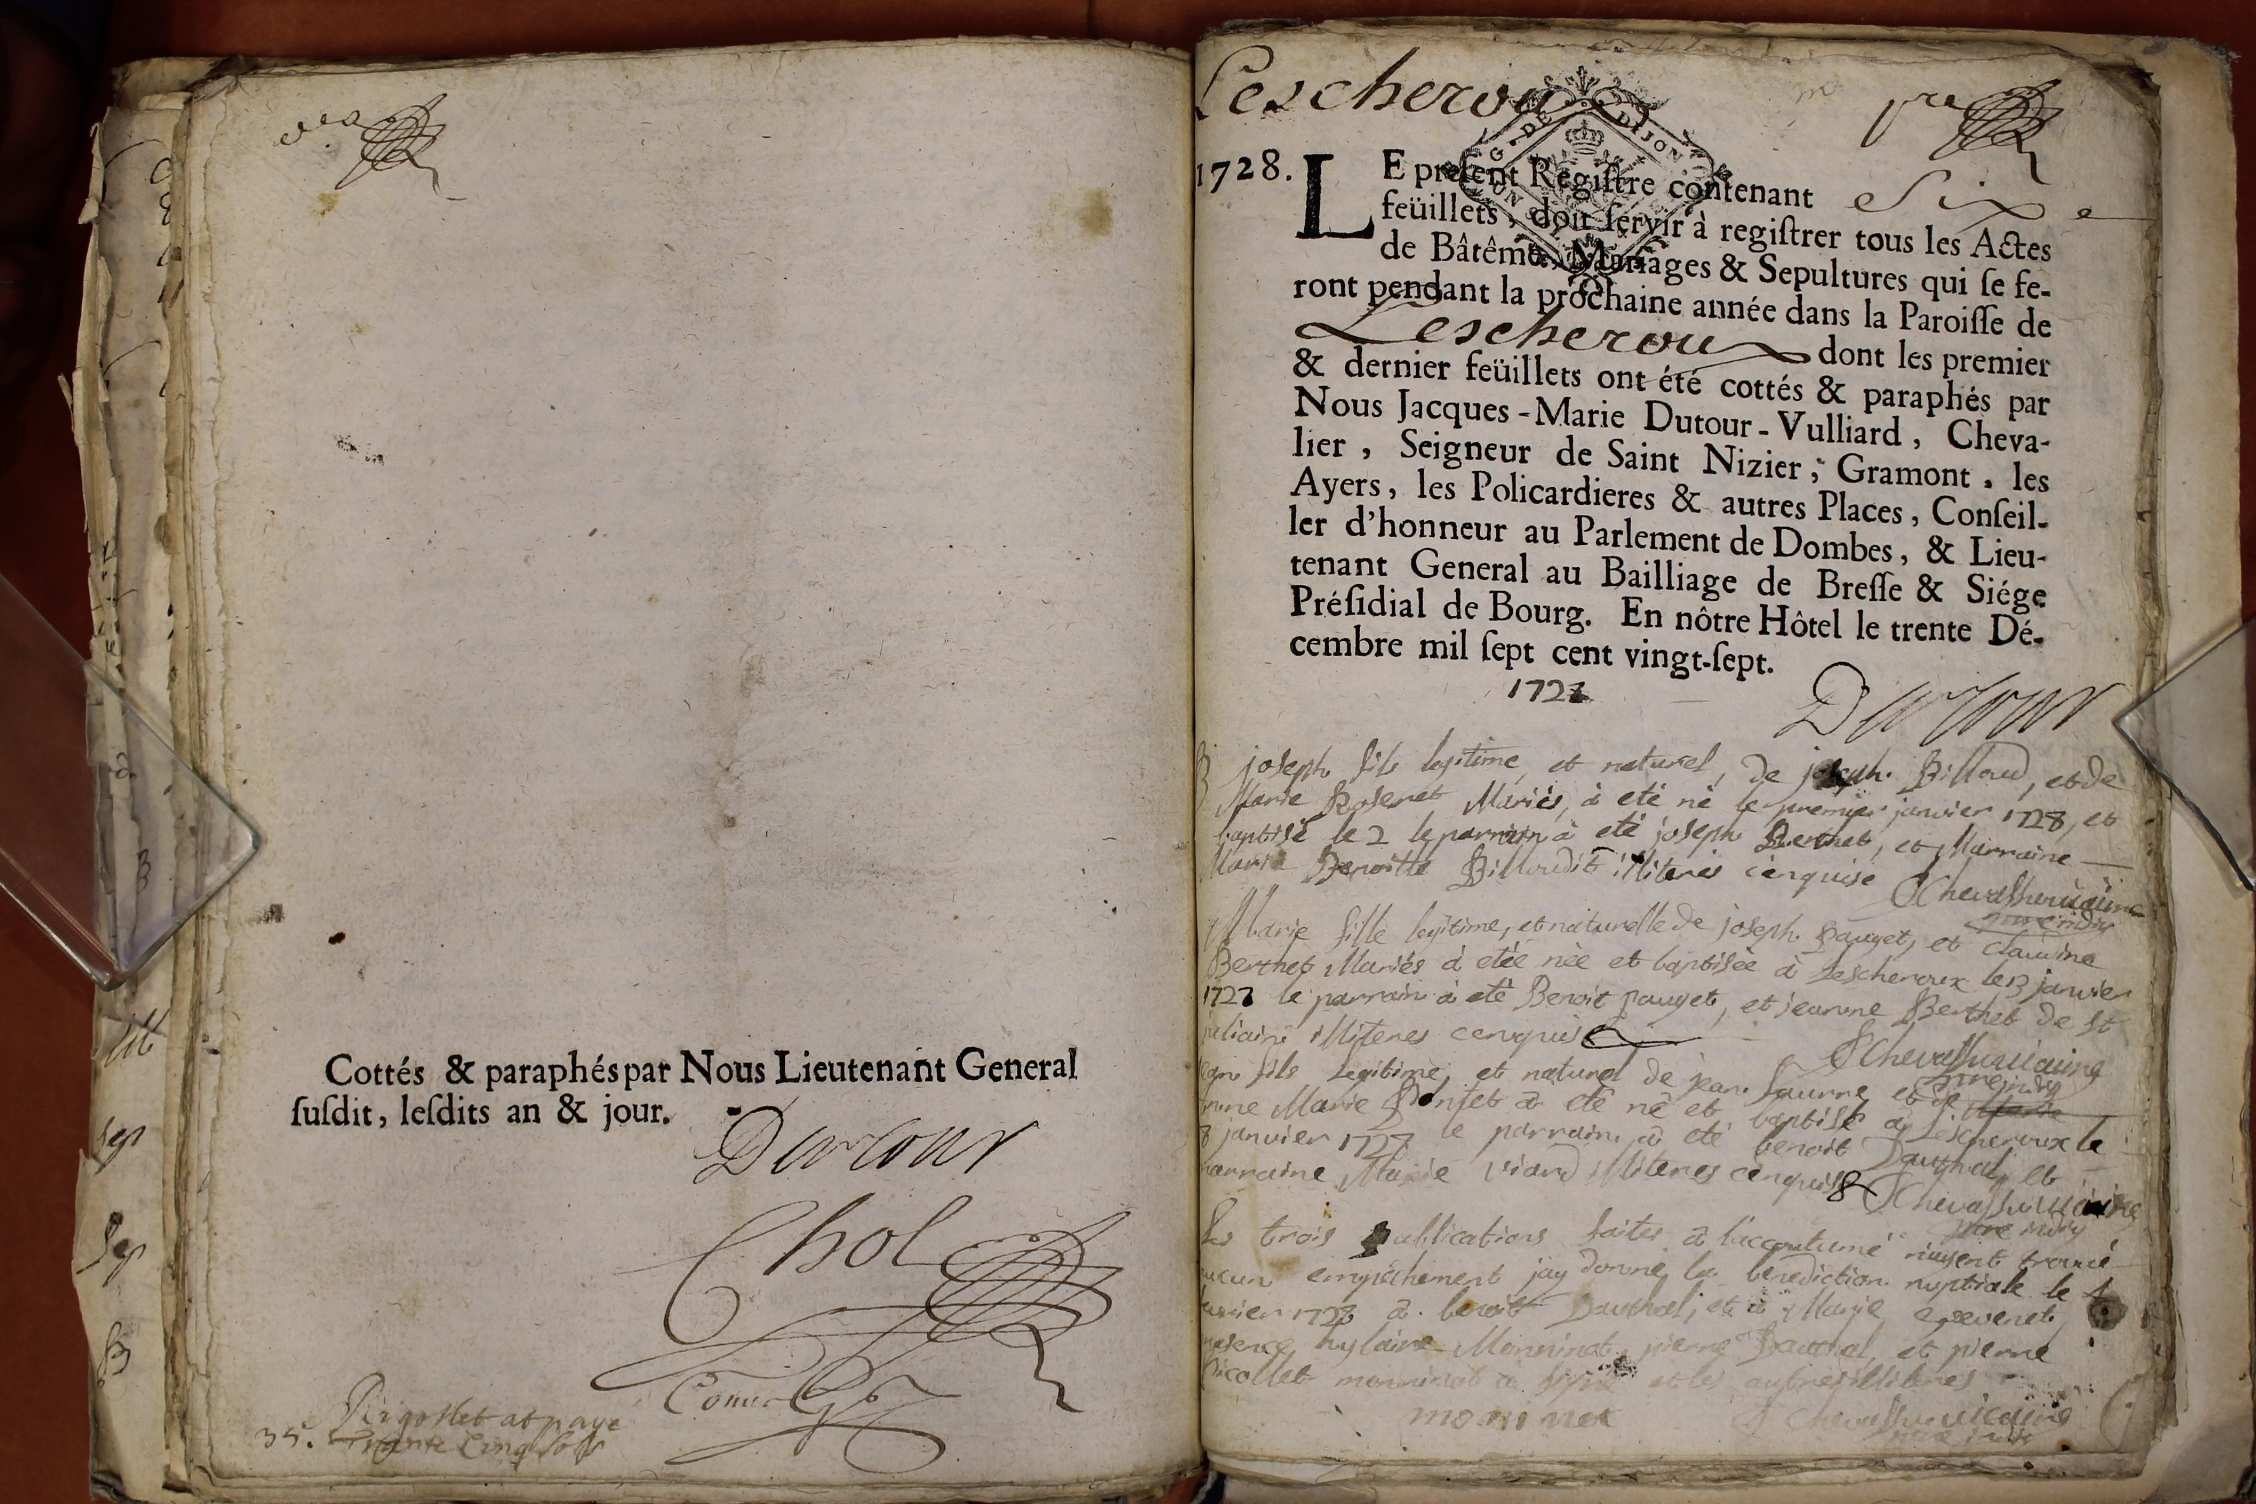 Cottés & paraphés par Nous Lieutenant General
ſuſdit, leſdits an & jour.
Dutour
Chol
Rigollet at paye
35. trente Cinq sols
Lescheroux
G. DE DIJON
1728.
LE preſent Regiſtre contenant Six
feüillets, doit ſervir à regiſtrer tous les Actes
de Bâtême, Mariages & Sepultures qui ſe fe-
ront pendant la prochaine année dans la Paroiſſe de
Lescheroux dont les premier
& dernier feüillets ont été cottés & paraphés par
Nous Jacques-Marie Dutour-Vulliard, Cheva-
lier, Seigneur de Saint Nizier, Gramont, les
Ayers, les Policardieres & autres Places, Conſeil-
ler d'honneur au Parlement de Dombes, & Lieu-
tenant General au Bailliage de Breſſe & Siége
Préſidial de Bourg. En nôtre Hôtel le trente Dé-
cembre mil ſept cent vingt-ſept.
1728
Dutour
B joseph fils legitime, et naturel, de joseph Billoud, et de
Marie Rosenet Mariés, à eté né le premier janvier 1728, et
baptisé le 2 le parrain à eté joseph Berthet, et Marraine
Marie Benoitte Billoudit illiterés enquis
Marie fille legitime, et naturelle de joseph pauget, et claudine
Berthet Mariés à etée née et baptisée à Lescheroux le 3 janvier
1728 le parrain à eté Benoit pauget, et jeanne Berthet de St
juliain illiteres enquis
fils legitime, et naturel de jean et de
Marie à eté né et baptisé à Lescheroux le
8 janvier 1728 le parrain à eté benoit Dauthal, et
marraine Marie viard illiteres enquis
Les trois publications faites à l'accoutumé n'ayent trouvé
aucun empechement jay donné la benediction nuptiale le
1728 à benoit Dauthal, et à Marie
presence hylaire Monninot, pierre Dauthal, et pierre
Nicollet monninot à signé et les autres illiteres
moninot